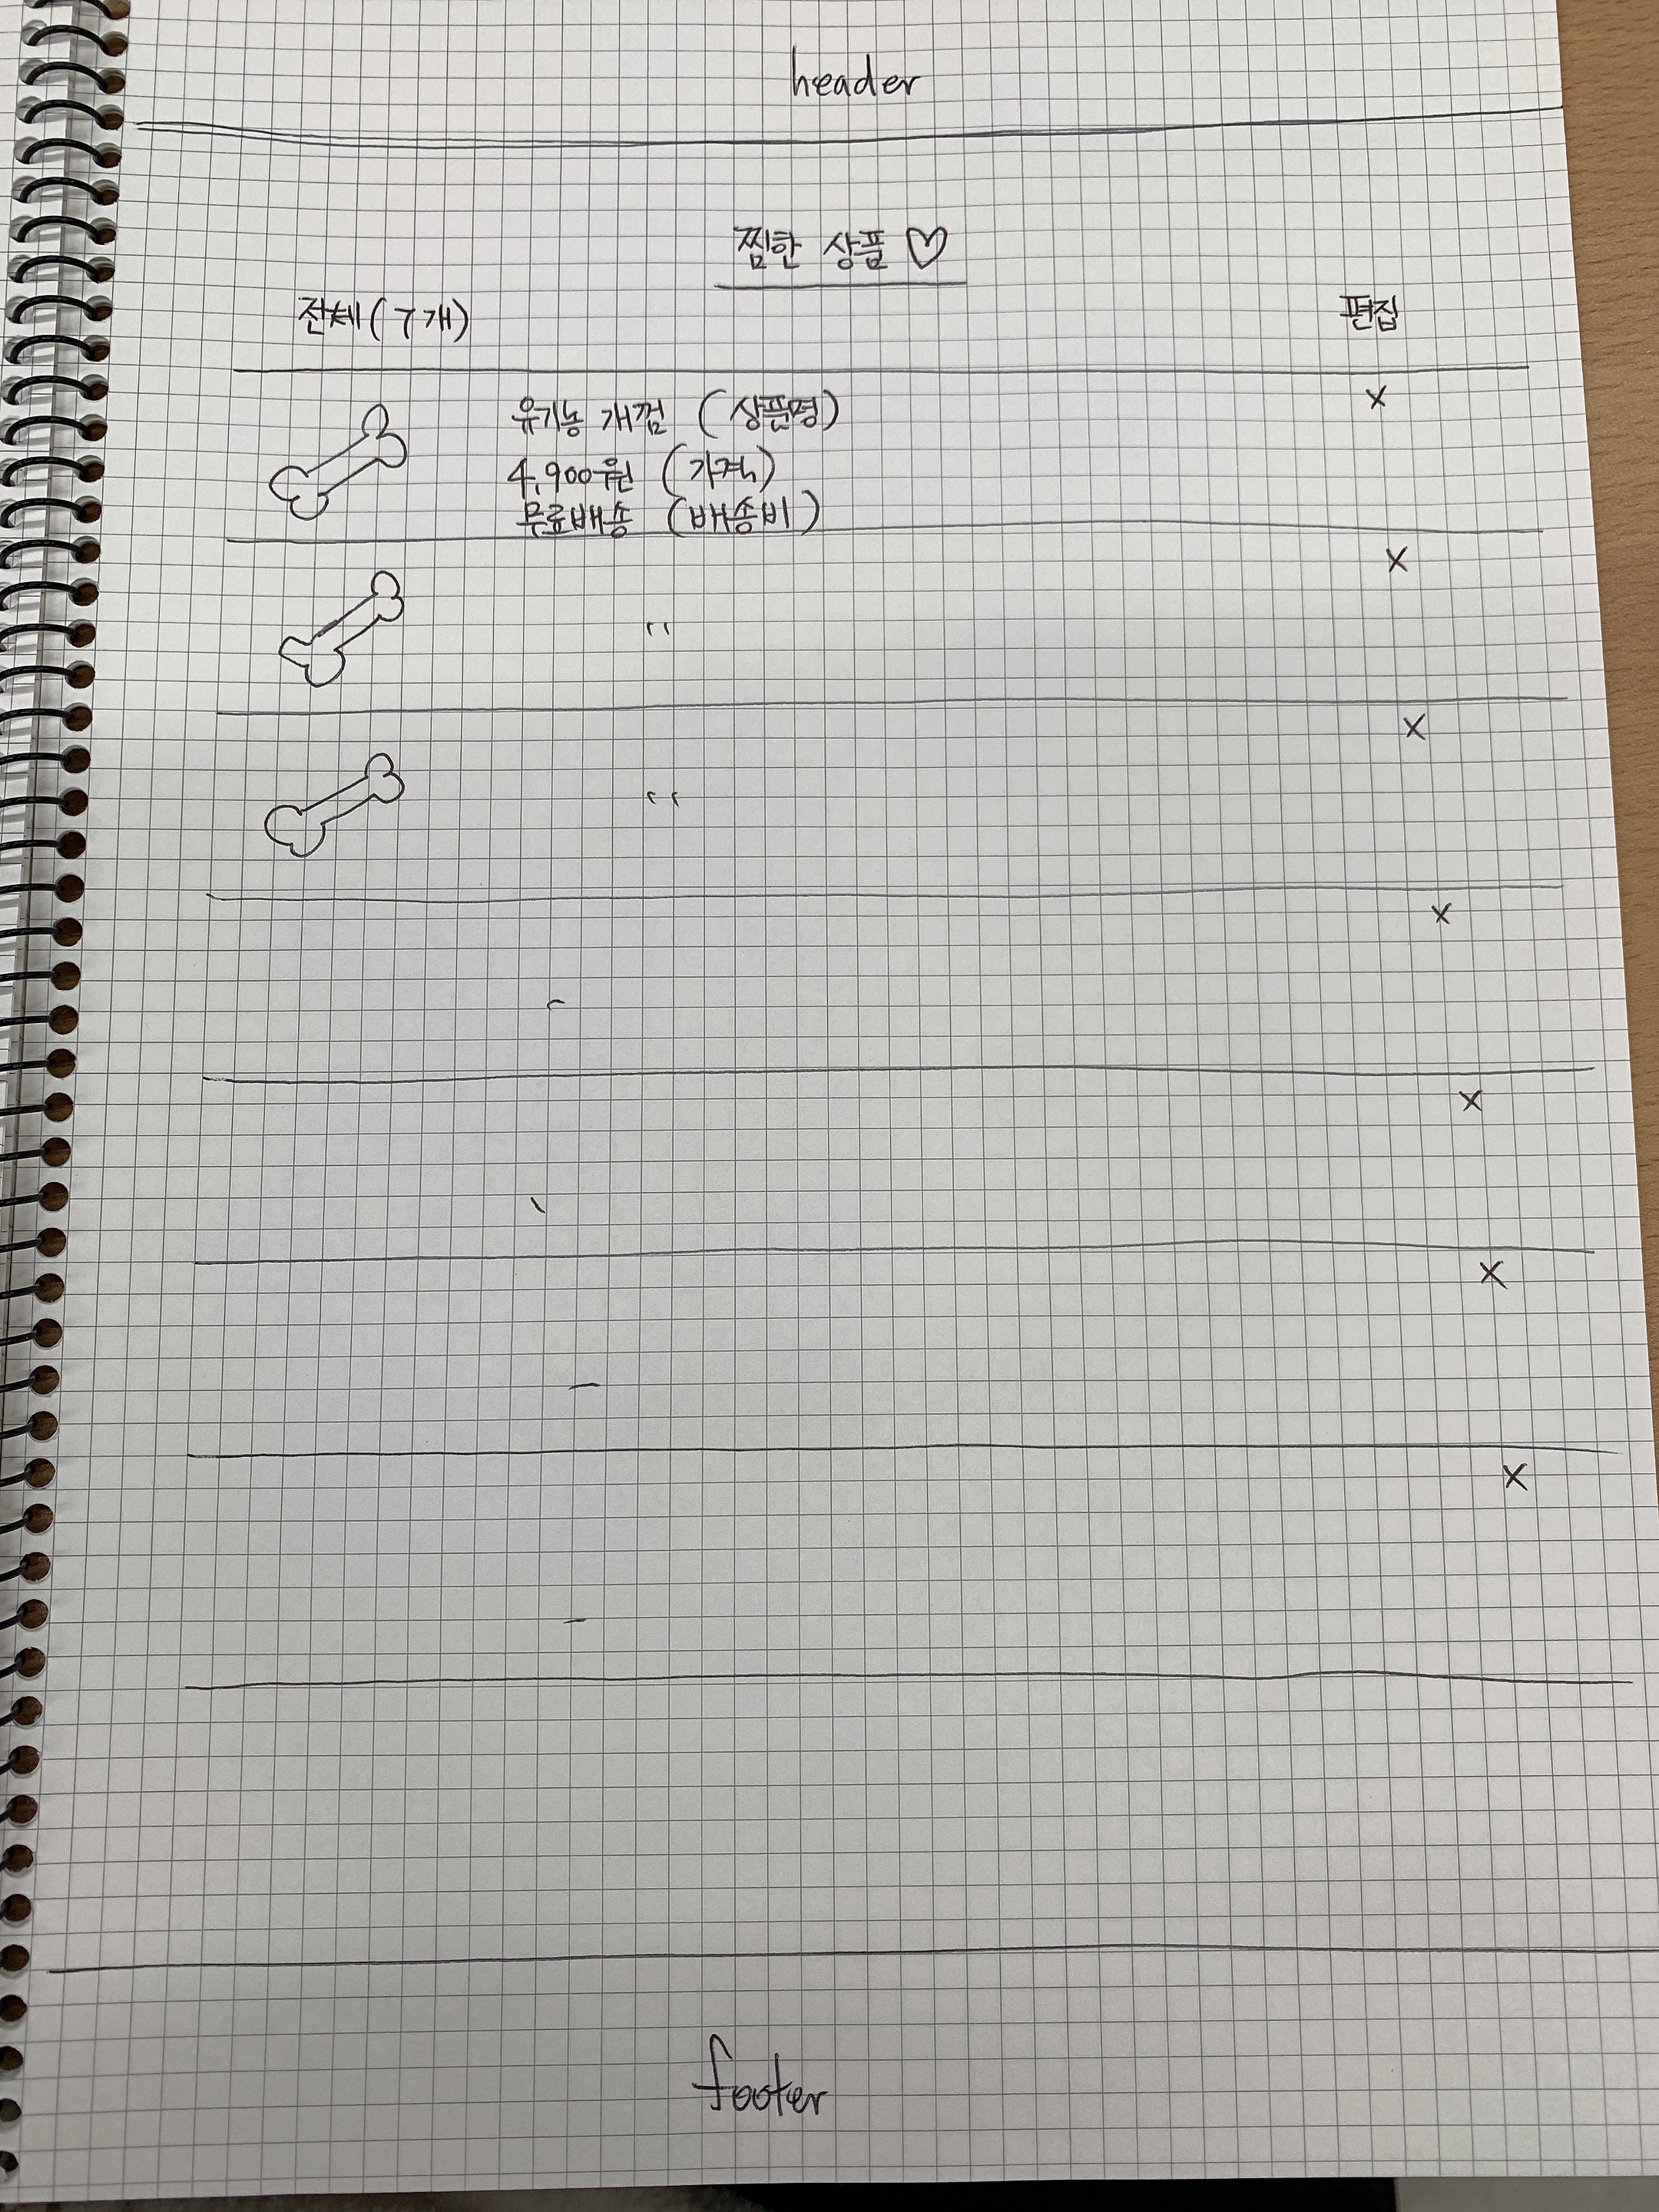 header
찜한 상품 ♡
전체(7개) 편집
유기농 개껌 (상품명) X
4,900원 (가격)
무료배송 (배송비)
X
〃
X
〃
X
X
X
X
footer